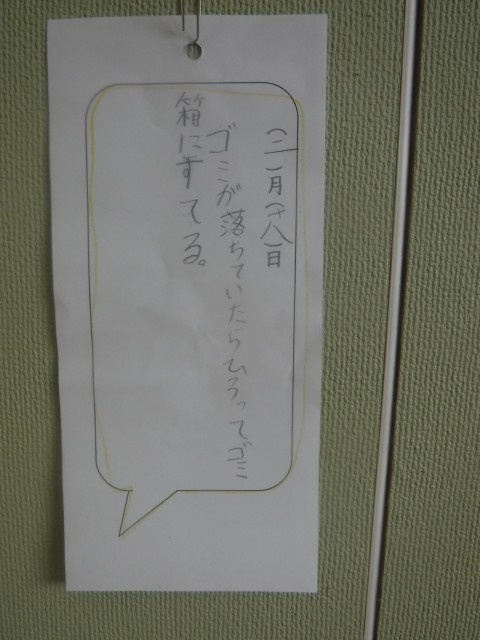 (二)月(十八)日
ゴミが落ちていたらひろってゴミ
箱にすてる。